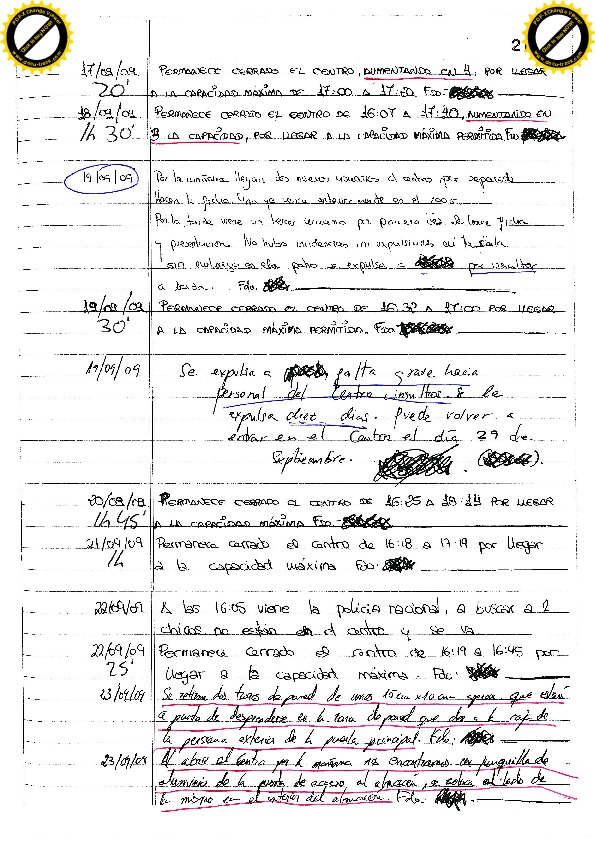 PDF-XChange Viewer
Click to buy NOW!
www.docu-track.com
PDF-XChange Viewer
Click to buy NOW!
www.docu-track.com
2
17/09/09 PERMANECE CERRADO EL CENTRO, AUMENTANDO EN 4, POR LLEGAR
20' A LA CAPACIDAD MÁXIMA DE 17:00 A 17:20 Fdo:
18/09/09 PERMANECE CERRADO EL CENTRO DE 16:07 A 17:40, AUMENTANDO EN
1h 30' 3 LA CAPACIDAD, POR LLEGAR A LA CAPACIDAD MÁXIMA PERMITIDA Fdo
19/09/09 Por la mañana llegan dos nuevos usuarios al centro por separado
Hacen la ficha. Uno ya venía anteriormente en el
Por la tarde viene un tercer usuario por primera vez. Se hace ficha
y presentación. No hubo incidencias ni expulsiones en la sala
sin embargo en el patio se expulsa a por insultar
a Fdo.
19/09/09 PERMANECE CERRADO EL CENTRO DE 16:32 A 17:00 POR LLEGAR
30' A LA CAPACIDAD MÁXIMA PERMITIDA. Fdo:
19/09/09 Se expulsa a falta grave hacia
personal del Centro insultos. Se le
expulsa diez días. Puede volver a
entrar en el Centro el día 29 de
Septiembre.
20/09/09 PERMANECE CERRADO EL CENTRO DE 16:25 A 18:14 POR LLEGAR
1h 45' A LA CAPACIDAD MÁXIMA Fdo:
21/09/09 Permanece cerrado el centro de 16:18 a 17:19 por llegar
1h a la capacidad máxima Fdo:
22/09/09 A las 16:05 viene la policia nacional, a buscar a 2
chicos no están en el centro y se va
22/09/09 Permanece cerrado el centro de 16:19 a 16:45 por
25' llegar a la capacidad máxima. Fdo:
23/09/09 Se retiran dos trozos de pared de unos 15cm x 10cm aprox. que estan
a punto de desprenderse en la zona de pared que da a la reja de
la persiana exterior de la puerta principal. Fdo:
23/09/09 Al abrir el Centro por la mañana nos encontramos con
aluminio de la puerta de acceso al almacen, se coloca al lado de
la misma en el interior del almacen. Fdo.